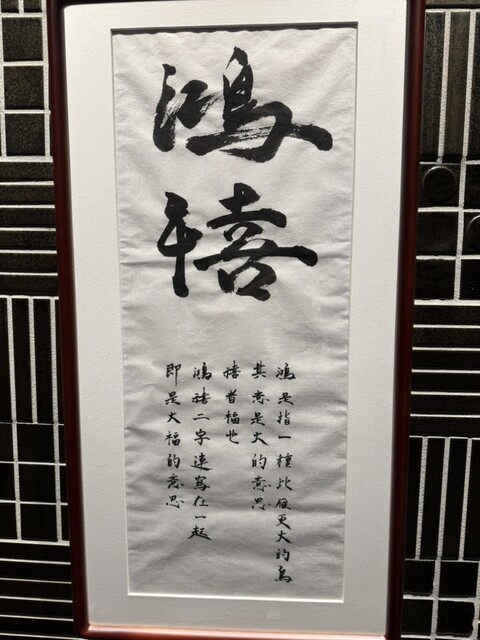 鴻禧
鴻是指一種比雁更大的鳥
其意是大的意思
禧者福也
鴻禧二字連寫在一起
即是大福的意思